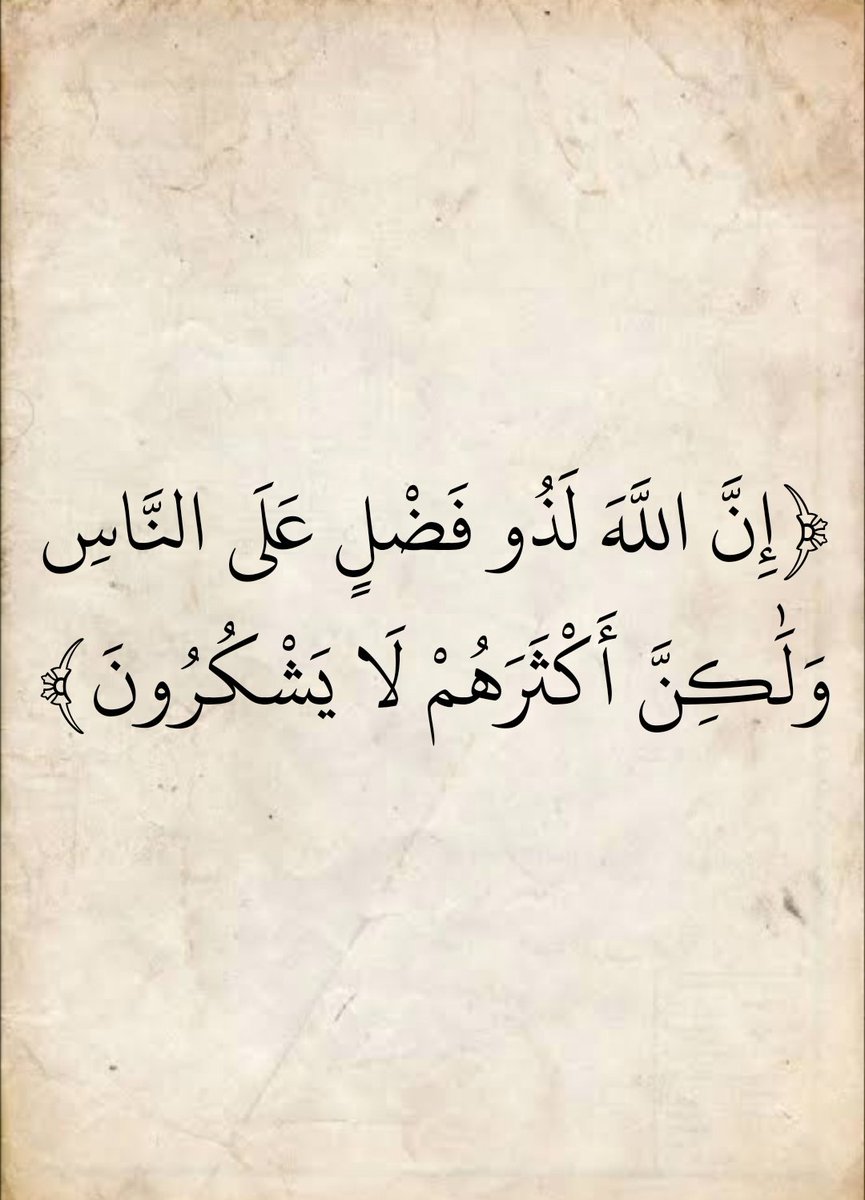 ﴿إِنَّ اللَّهَ لَذُو فَضْلٍ عَلَى النَّاسِ
وَلَٰكِنَّ أَكْثَرَهُمْ لَا يَشْكُرُونَ﴾